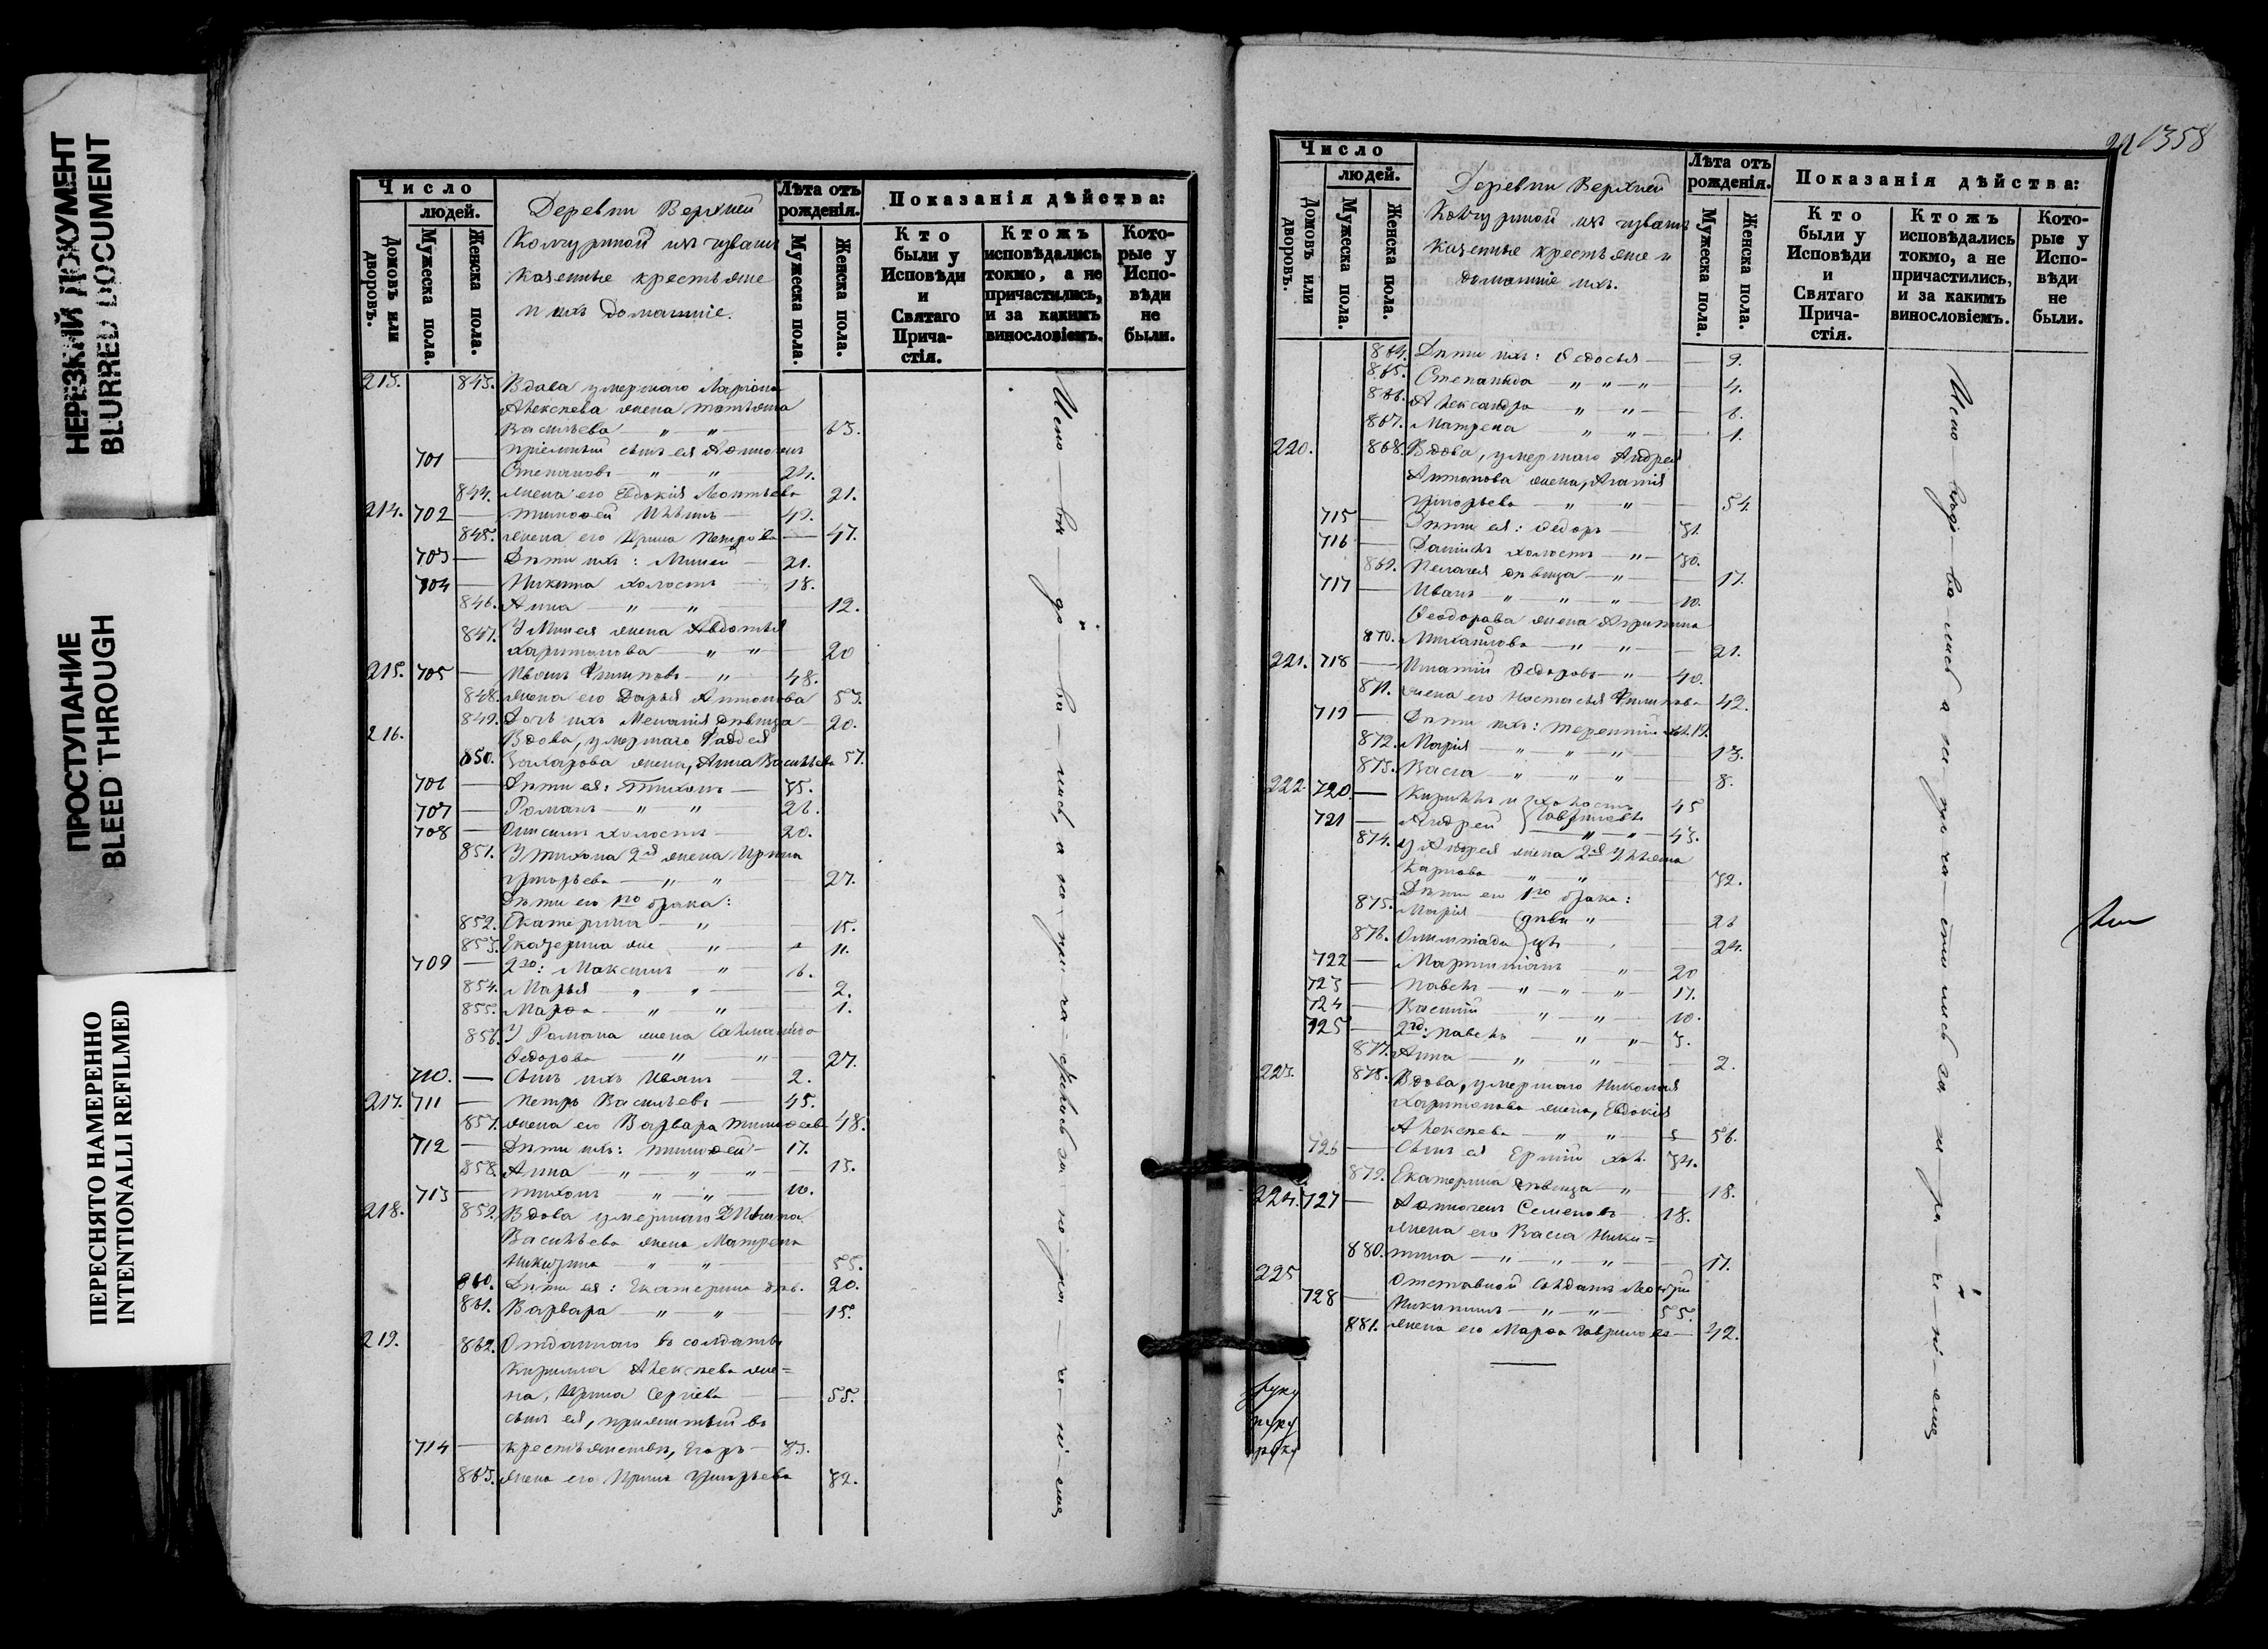 НЕРЕЗКИЙ ДОКУМЕНТ
BLURRED DOCUMENT
ПРОСТУПАНИЕ
BLEED THROUGH
ПЕРЕСНЯТО НАМЕРЕННО
INTENTIONALLI REFILMED
Число
людей.
Домовъ или дворовъ.
Мужеска пола.
Женска пола.
Деревни Верхней
изъ чувашъ
казенные крестьяне
и ихъ домашніе.
Лѣта отъ рожденія.
Мужеска пола.
Женска пола.
Показанія дѣйства:
Кто были у Исповѣди и Святаго Причастія.
Ктожъ исповѣдались токмо, а не причастились, и за какимъ винословіемъ.
Которые у Исповѣди не были.
213. 843. Вдова умершаго
Алексѣева жена Татьяна
Васильева — " — " — 63.
701 — пріемный сынъ ея
Степановъ — " — " 24.
844. жена его Евдокія Леонтьева 21.
214. 702 — Тимофей 49.
845. жена его Ирина Петрова — 47.
703 — Дѣти ихъ: Миней — 21.
704 — Никита холостъ — 18.
846. Анна — " — " — 12.
847. У Минея жена Авдотья
Харитонова — " — " — 20
215. 705 — Иванъ Филиповъ — " — 48.
848. жена его Дарья Антонова 53.
849. Дочь ихъ Меланія дѣвица — 20.
216. Вдова, умершаго Фаддея
850. Захарова жена, Анна Васильева 57.
706 — Дѣти ея: Тихонъ — 35.
707 — Романъ — " — " 26.
708 — Онисимъ холостъ — 20.
851. У Тихона 2я жена Ирина
Григорьева — " — " — 27.
Дѣти его 1го брака:
852. Екатерина — " — 15.
853. Екатерина же — " — 11.
709 — 2го: Максимъ — " — 6.
854. Марья — " — " — 2.
855. Марѳа — " — " — 1.
856. У Романа жена
Федорова — " — " — 27.
710. — Сынъ ихъ Иванъ — 2.
217. 711 — Петръ Васильевъ — 45.
857. жена его Варвара Тимофеева 48.
712 — Дѣти ихъ: Тимофей — 17.
858. Анна — " — " — " — 13.
713 — Тихонъ — " — " — 10.
218. 859. Вдова умершаго
Васильева жена, Матрена
Никитина — " — " — 55.
860. Дѣти ея: Екатерина дѣв. 20.
861. Варвара — " — " — 15.
219. 862. Отданнаго въ солдаты
Кирилла Алексѣева же=
на, Ирина Сергѣева — 55.
сынъ ея, принятый въ
714 — крестьянство, Егоръ — 33.
863. жена его Ирина Григорьева 32.
1358
Число
людей.
Домовъ или дворовъ.
Мужеска пола.
Женска пола.
Деревни Верхней
изъ чувашъ
казенные крестьяне и
домашніе ихъ.
Лѣта отъ рожденія.
Мужеска пола.
Женска пола.
Показанія дѣйства:
Кто были у Исповѣди и Святаго Причастія.
Ктожъ исповѣдались токмо, а не причастились, и за какимъ винословіемъ.
Которые у Исповѣди не были.
864. Дѣти ихъ: Федосья — 9.
865. Степанида — " — " — " — 4.
866. Александра — " — " — 6.
867. Матрена " — " — 1.
220. 868. Вдова, умершаго Андрея
Антонова жена, Агафія
Григорьева — " — " — 54.
715 — Дѣти ея: Федоръ — 31.
716 — Даніилъ холостъ — " — 30.
869. Пелагея дѣвица — " — 17.
717 — Иванъ — " — " — " — 10.
Феодорова жена
870. Михайлова — " — " — 21.
221. 718 — Игнатій Федоровъ — " — 40.
871. жена его Настасья Филипова 42.
719 — Дѣти ихъ: Терентій хол. 19.
872. Марія — " — " — " — 13.
873. Васса — " — " — " — 8.
222. 720. — Кириллъ и холостъ 45
721 — Андрей Гавриловъ — " — " — 43.
874. У Андрея жена 2я Ульяна
Карпова — " — " — 32.
Дѣти его 1го брака:
875. Марія — дѣви " — 26
876. Олимпіада цы — 24.
722 — — " — 20
723 — Павелъ — " — " — " — 17.
724 — Василій — " — " — 10.
725 — 2го: Павелъ — " — " — 3.
877. Анна — " — " — 2.
223. 878. Вдова, умершаго Николая
Харитонова жена, Евдокія
Алексѣева — " — " — 56.
726 — Сынъ ея хол. 34.
879. Екатерина дѣвица — " — 18.
224. 727 — Семеновъ — 18.
жена его Васса Ники=
880. тина — " — " — " — 17.
225 Отставной солдатъ
728 — Никитинъ — " — " — 55.
881. жена его Марѳа Гаврилова — 42.